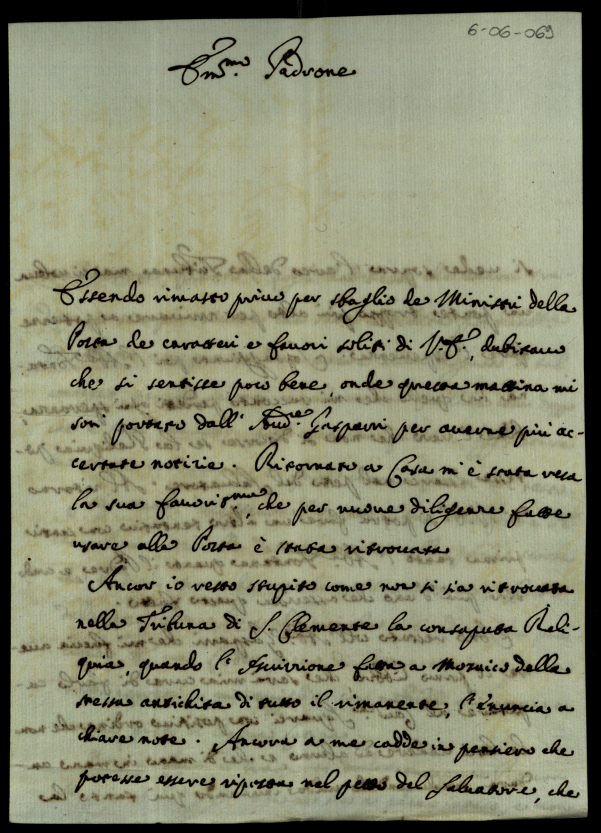 6-06-069
Em.mo Padrone
Essendo rimasto privo per sbaglio de Ministri della
Posta de caratteri e favori soliti di V.E., dubitavo
che si sentisse poco bene, onde questa mattina mi
son portato dall' Gasparri per averne più ac-
certate notizie. Ritornato a Casa m'è stata resa
la sua favorit.ma, che per nuove diligenze fatte
usare alla Posta è stata ritrovata
Ancor io resto stupito come non si sia ritrovata
nella Tribuna di S. Clemente la consaputa Reli-
quia, quando l'Iscrizione fatta a Mosaico della
stessa antichità di tutto il rimanente, l'enuncia a
chiare note. Ancora a me cadde in pensiero che
potesse essere riposta nel petto del Salvatore, che